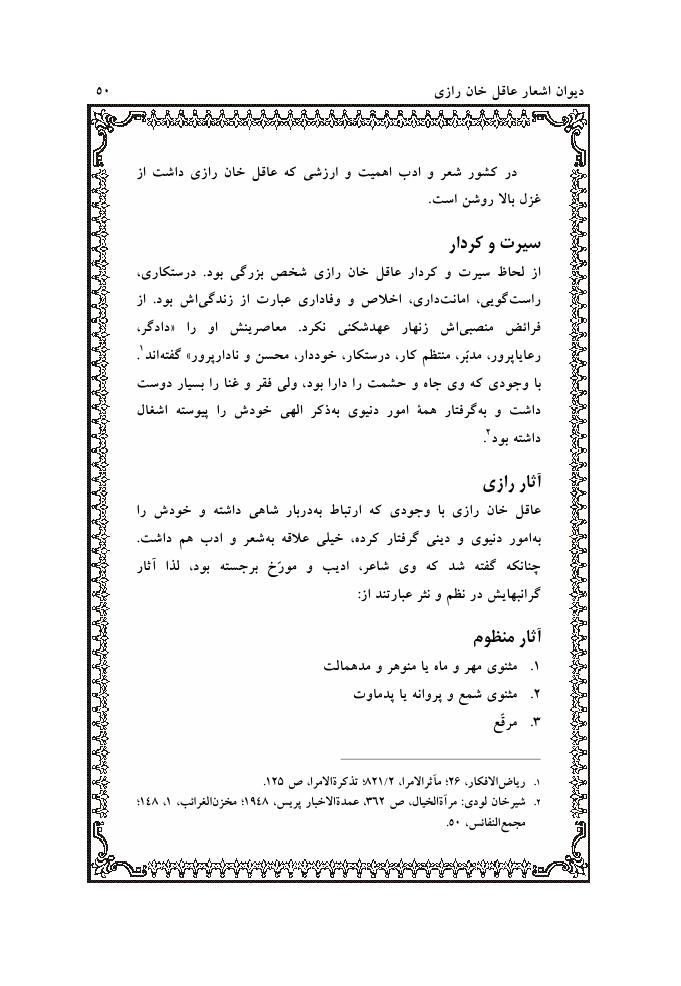 دیوان اشعار عاقل خان رازی ۵۰
در کشور شعر و ادب اهمیت و ارزشی که عاقل خان رازی داشت از
غزل بالا روشن است.
سیرت و کردار
از لحاظ سیرت و کردار عاقل خان رازی شخص بزرگی بود. درستکاری،
راست‌گویی، امانت‌داری، اخلاص و وفاداری عبارت از زندگی‌اش بود. از
فرائض منصبی‌اش زنهار عهدشکنی نکرد. معاصرینش او را «دادگر،
رعایاپرور، مدبّر، منتظم کار، درستکار، خوددار، محسن و نادارپرور» گفته‌اند۱.
با وجودی که وی جاه و حشمت را دارا بود، ولی فقر و غنا را بسیار دوست
داشت و به‌گرفتار همۀ امور دنیوی به‌ذکر الهی خودش را پیوسته اشغال
داشته بود۲.
آثار رازی
عاقل خان رازی با وجودی که ارتباط به‌دربار شاهی داشته و خودش را
به‌امور دنیوی و دینی گرفتار کرده، خیلی علاقه به‌شعر و ادب هم داشت.
چنانکه گفته شد که وی شاعر، ادیب و مورّخ برجسته بود، لذا آثار
گرانبهایش در نظم و نثر عبارتند از:
آثار منظوم
۱. مثنوی مهر و ماه یا منوهر و مدهمالت
۲. مثنوی شمع و پروانه یا پدماوت
۳. مرقّع
۱. ریاض‌الافکار، ۲۶؛ مآثرالامرا، ۸۲۱/۲؛ تذکرةالامرا، ص ۱۲۵.
۲. شیرخان لودی: مرآةالخیال، ص ۳۶۲، عمدةالاخبار پریس، ۱۹۴۸؛ مخزن‌الغرائب، ۱، ۱۴۸؛
مجمع‌النفائس، ۵۰.